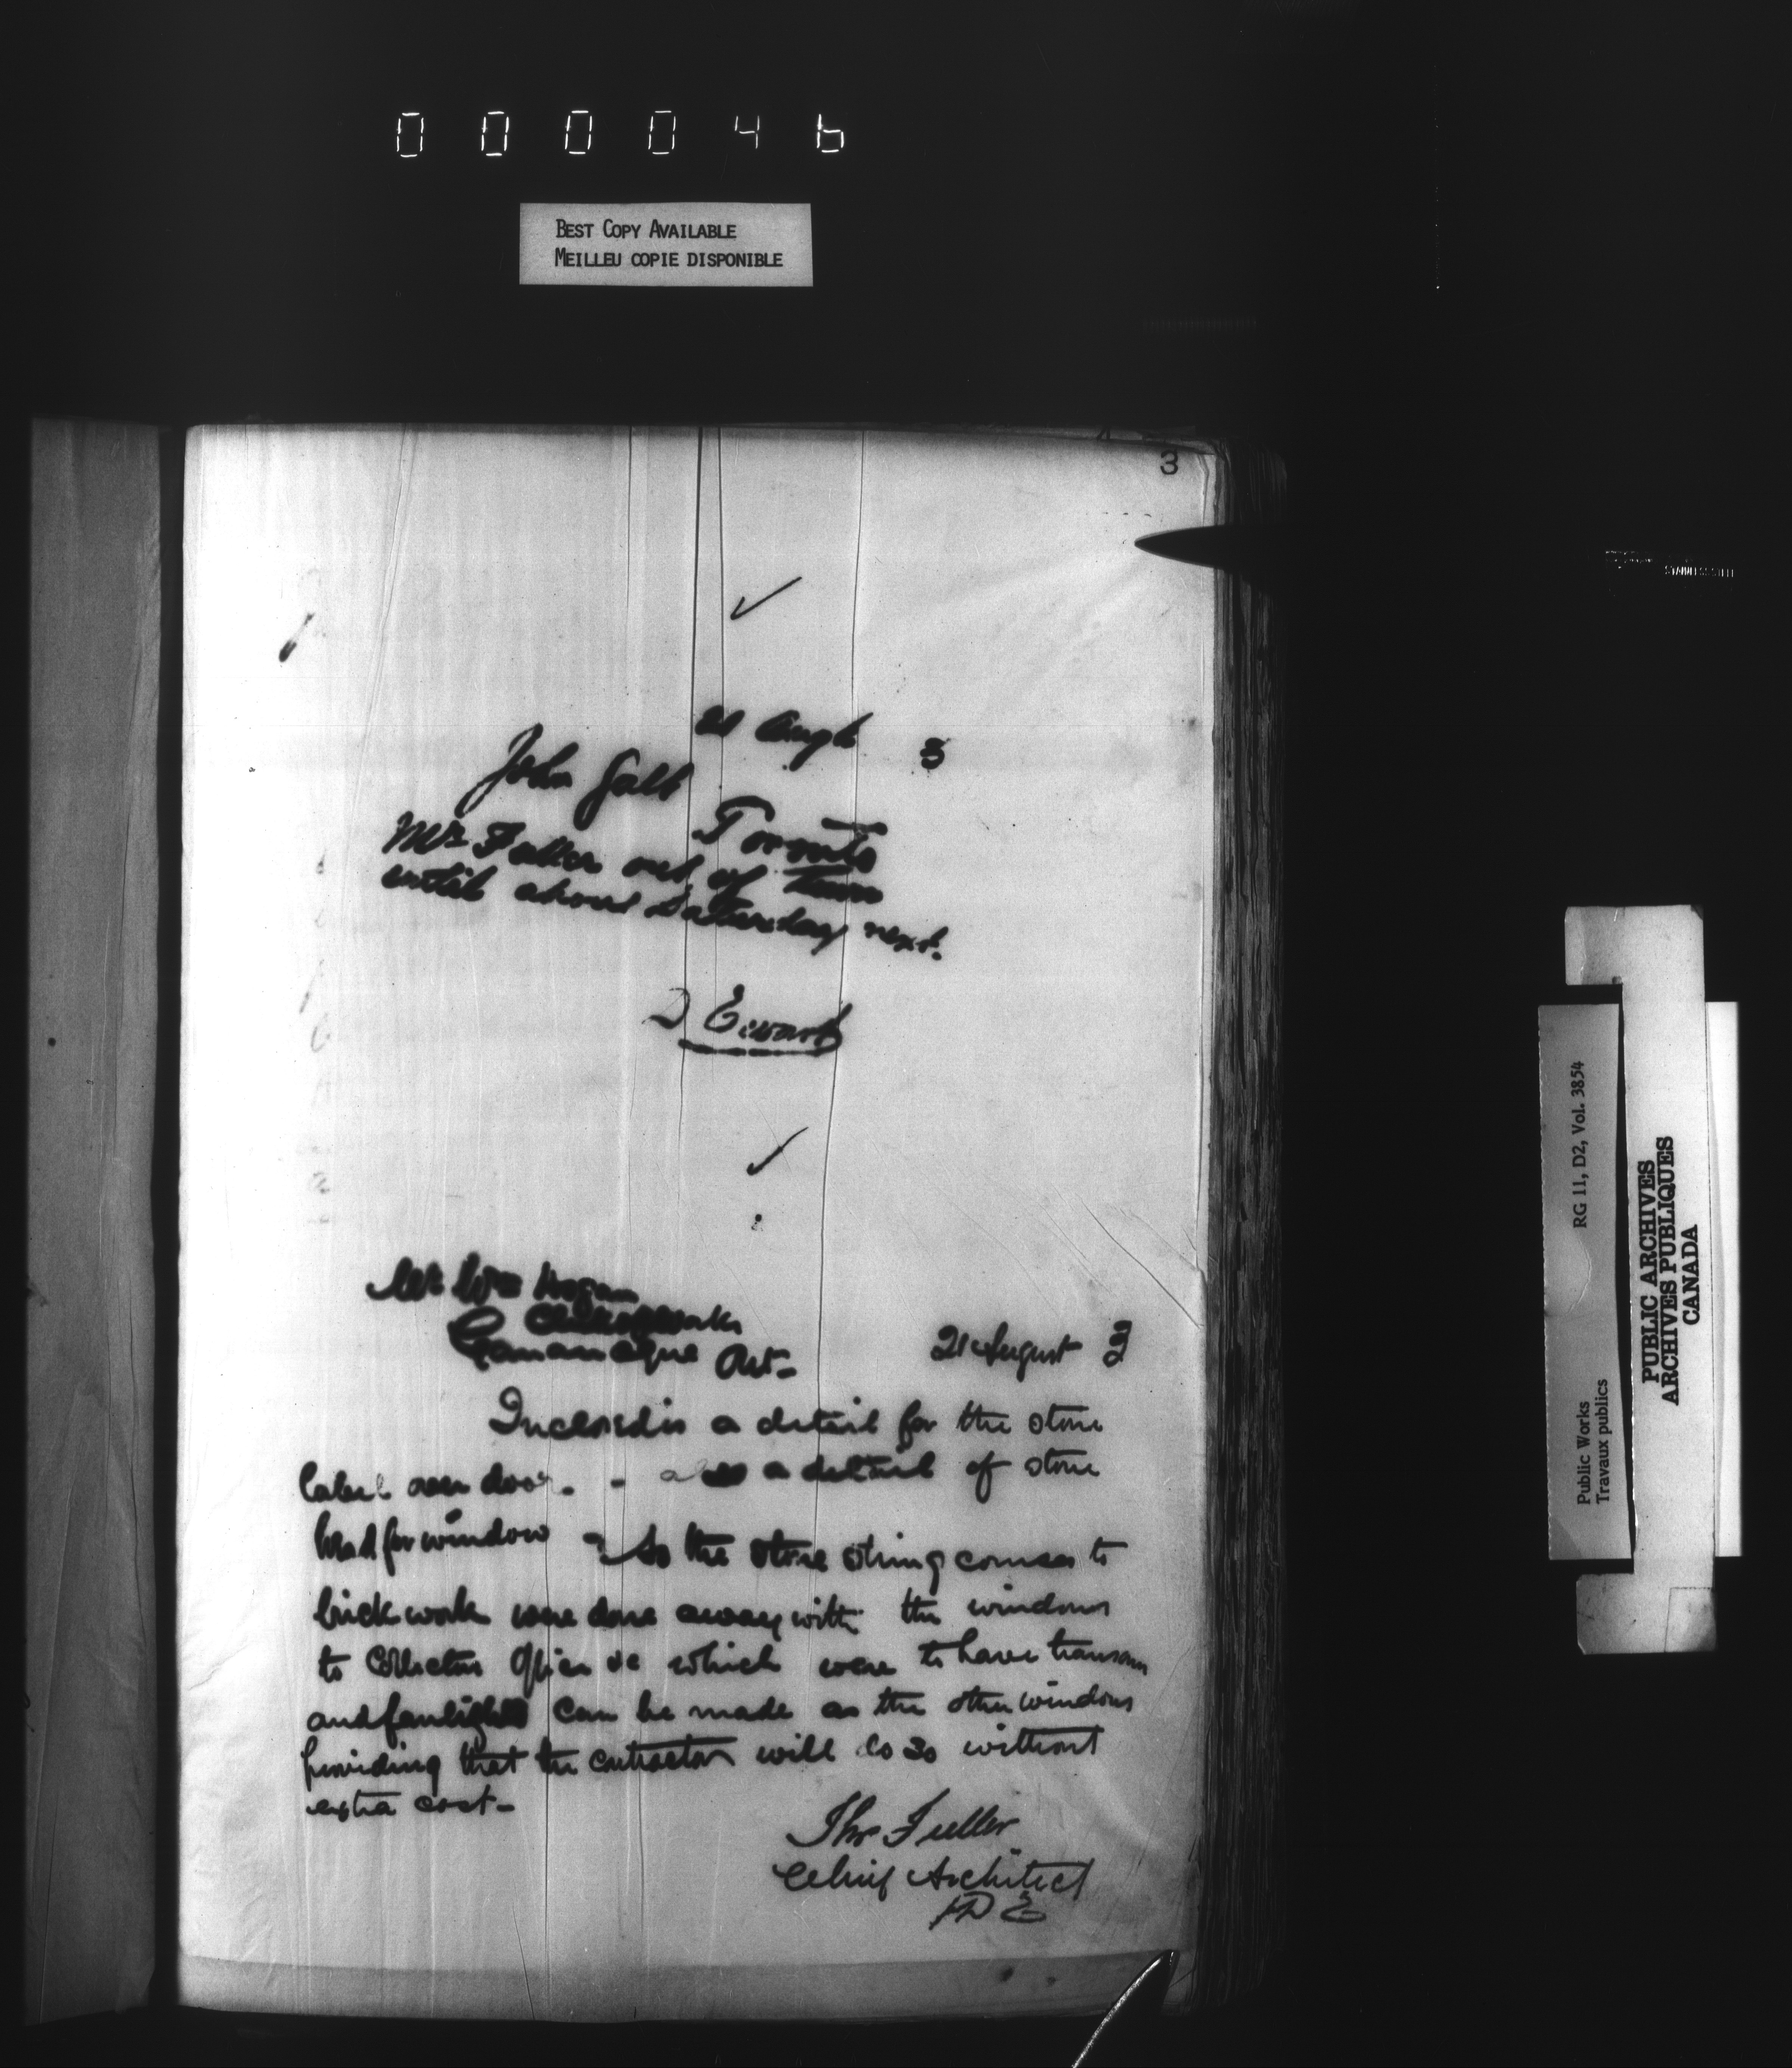 000046
BEST COPY AVAILABLE
MEILLEU COPIE DISPONIBLE
3
21 Augt 3
John Galt
Toronto
Mr Fuller out of Town
until about Saturday next.
D Ewart
Mr Wm Hogan
Clerk of Works
Gananoque Ont-
21 August 3
Inclosed is a detail for the stone
label over door. - also a detail of stone
head for window - As the stone string courses to
brick work were done away with the windows
to Collectors Office &c which were to have transom
and fanlights can be made as the other windows
providing that the contractor will do so without
extra cost-
Thos Fuller
Chief Architect
D E
STAINLESS STEEL
RG 11, D2, Vol. 3854
Public Works
Travaux publics
PUBLIC ARCHIVES
ARCHIVES PUBLIQUES
CANADA